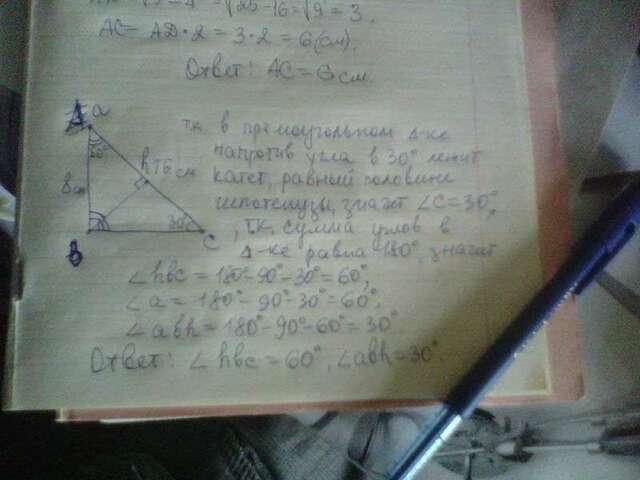 = √25-16 = √9 = 3.
AC = AD · 2 = 3 · 2 = 6 (см).
Ответ: AC = 6 см.
A a
т.к. в прямоугольном Δ-ке
напротив угла в 30° лежит
катет, равный половине
гипотенузы, значит ∠C = 30°,
, т.к. сумма углов в
Δ-ке равна 180°, значит
60°
h 16 см
8 см
30°
C
B
∠hbc = 180°-90°-30° = 60°,
∠a = 180°-90°-30° = 60°,
∠abh = 180°-90°-60° = 30°
Ответ: ∠hbc = 60°, ∠abh = 30°.